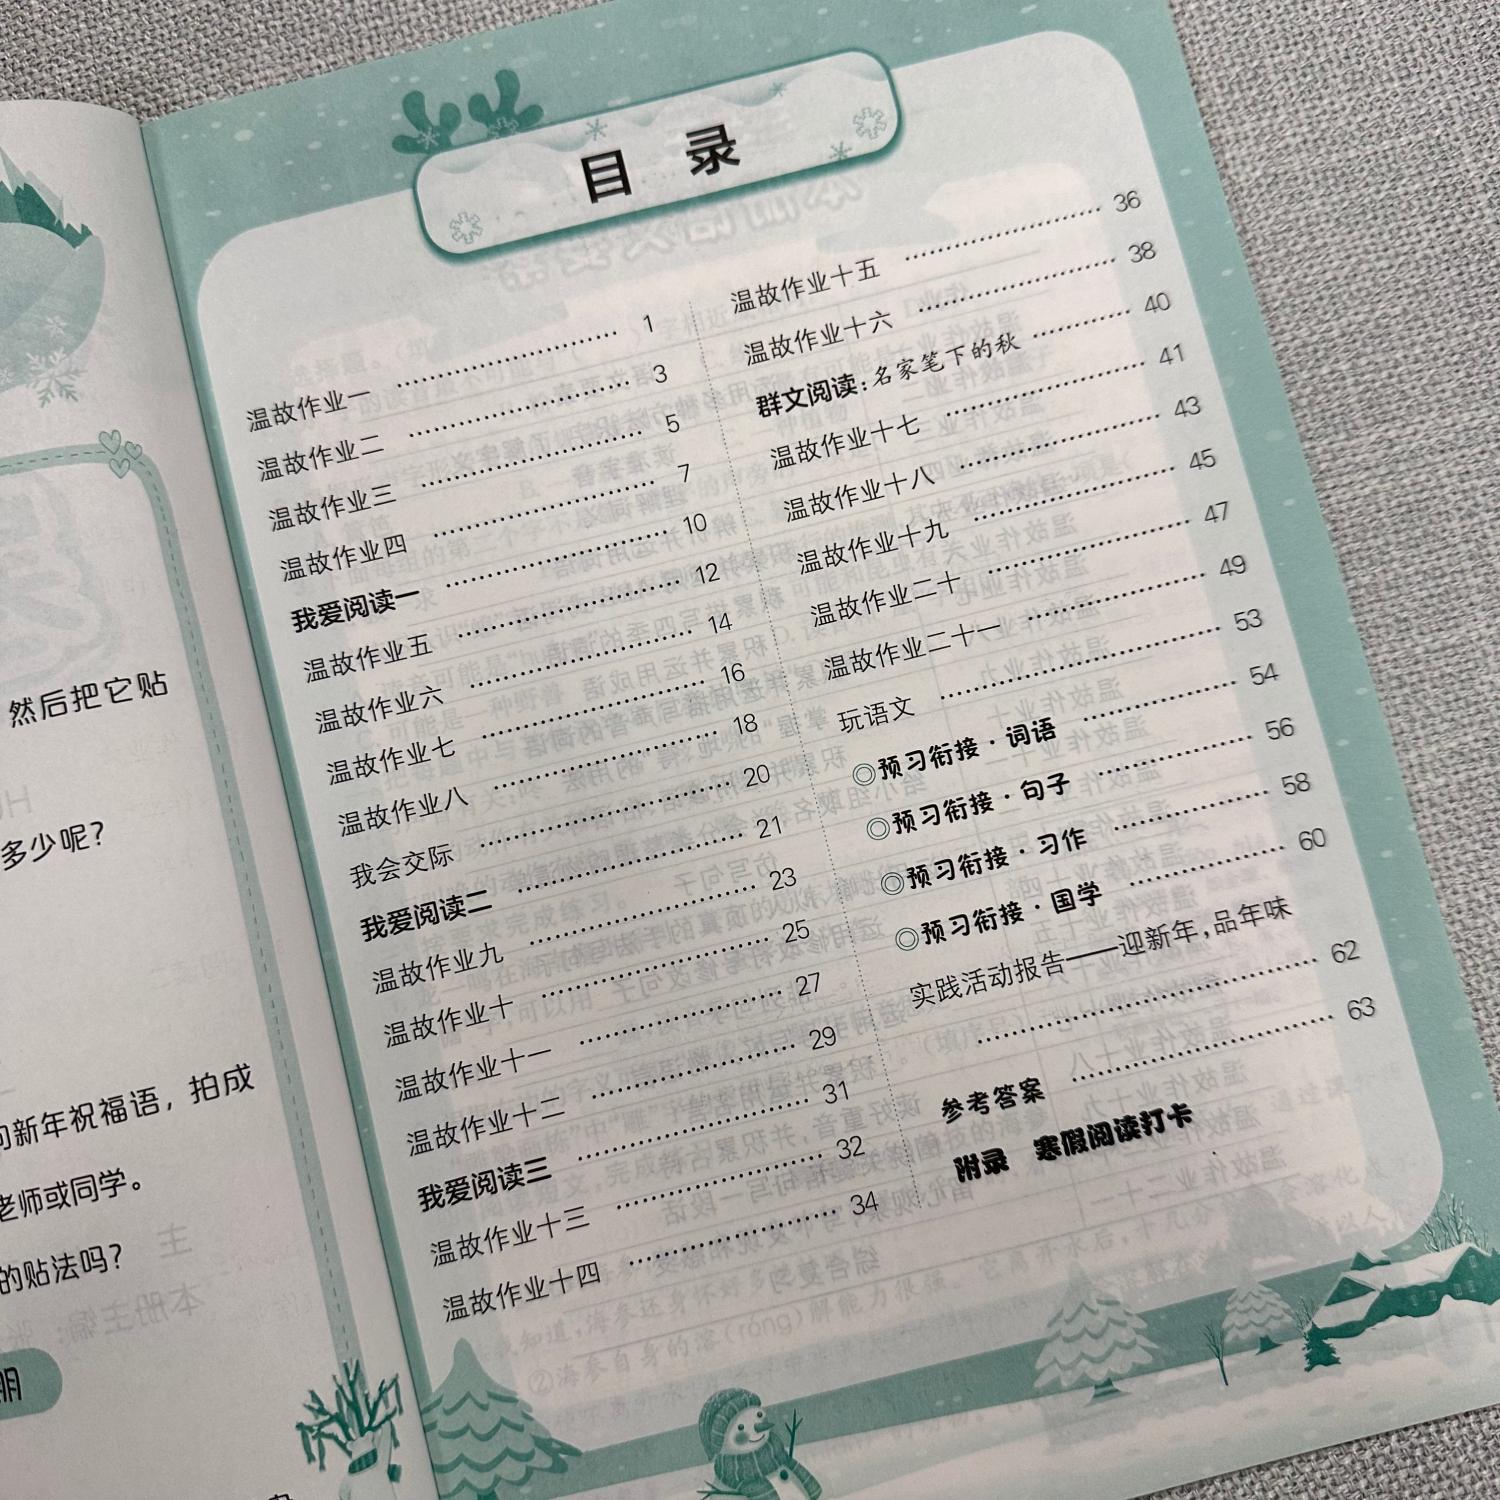 然后把它贴
多少呢？
新年祝福语，拍成
老师或同学。
的贴法吗？
目 录
温故作业一 …… 1
温故作业二 …… 3
温故作业三 …… 5
温故作业四 …… 7
我爱阅读一 …… 10
温故作业五 …… 12
温故作业六 …… 14
温故作业七 …… 16
温故作业八 …… 18
我会交际 …… 20
我爱阅读二 …… 21
温故作业九 …… 23
温故作业十 …… 25
温故作业十一 …… 27
温故作业十二 …… 29
我爱阅读三 …… 31
温故作业十三 …… 32
温故作业十四 …… 34
温故作业十五 …… 36
温故作业十六 …… 38
群文阅读：名家笔下的秋 …… 40
温故作业十七 …… 41
温故作业十八 …… 43
温故作业十九 …… 45
温故作业二十 …… 47
温故作业二十一 …… 49
玩语文 …… 53
◎预习衔接·词语 …… 54
◎预习衔接·句子 …… 56
◎预习衔接·习作 …… 58
◎预习衔接·国学 …… 60
实践活动报告——迎新年，品年味
…… 62
参考答案 …… 63
附录 寒假阅读打卡